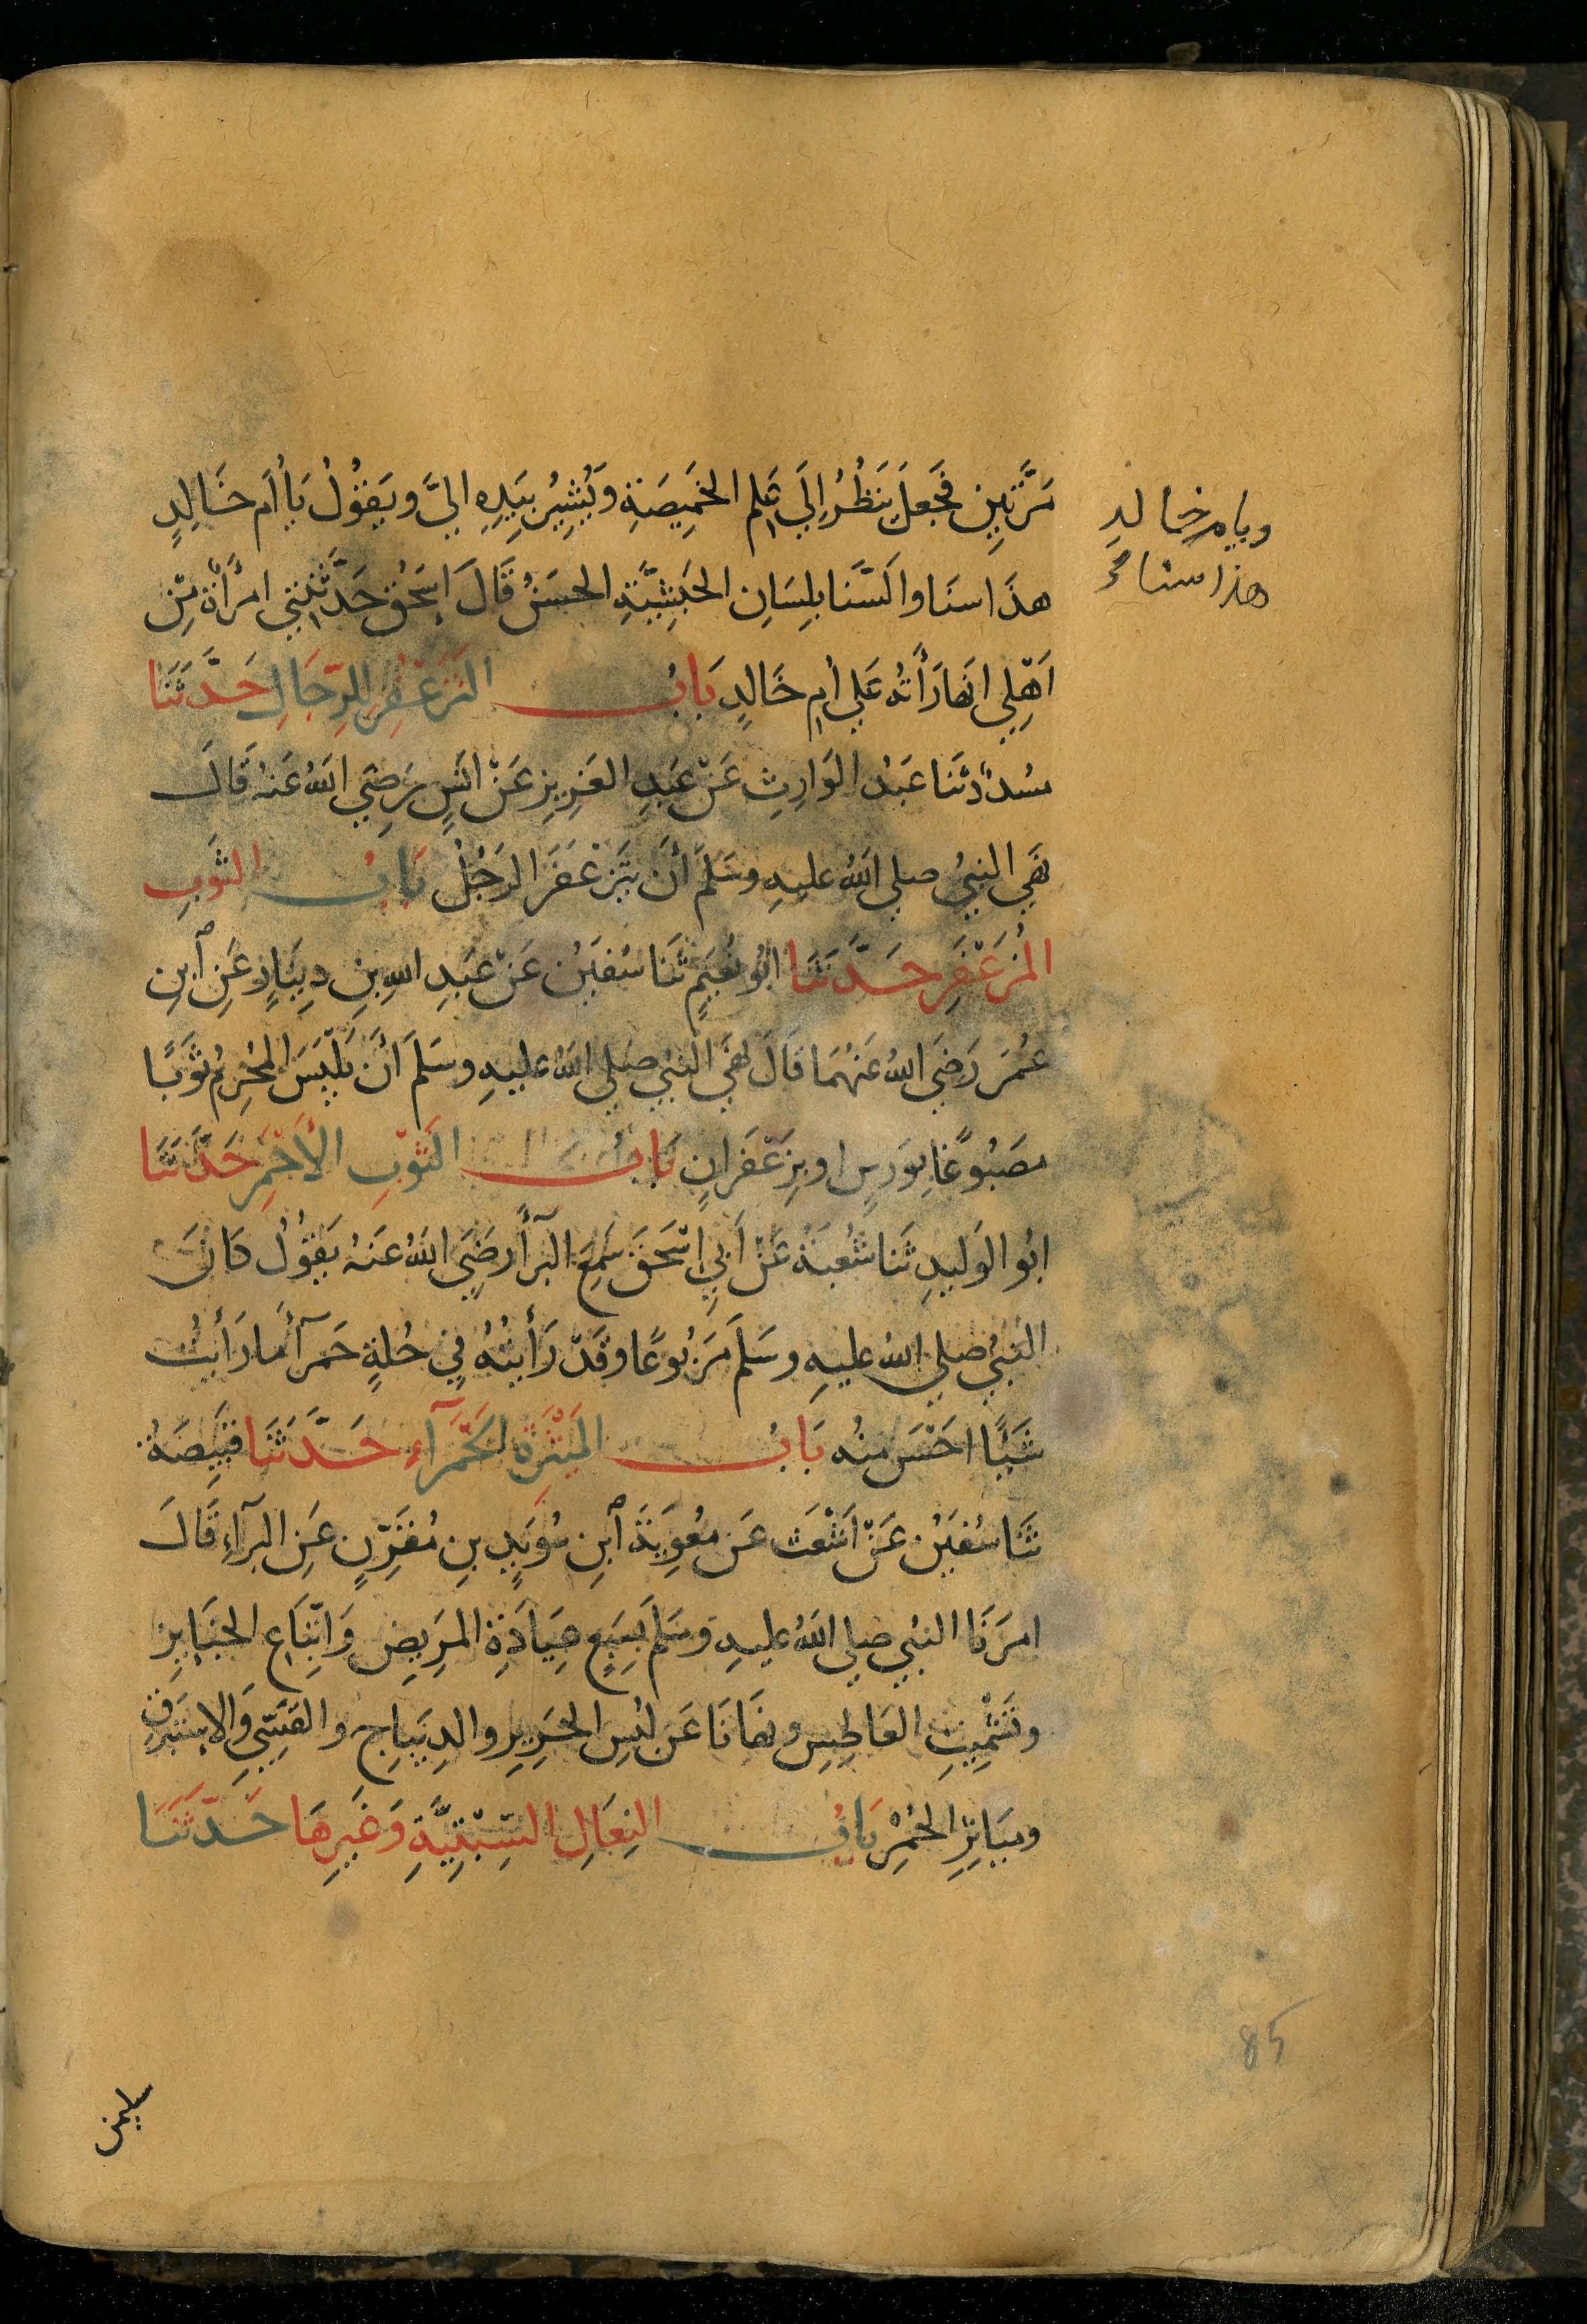 مَرَّتَيْنِ فَجَعَلَ يَنْظُرُ إِلَي عَلَمِ الخَمِيصَةِ وَيُشِيرُ بِيَدِهِ اليَّ وَيَقُوْلُ يَا أُم خَالِدٍ
هذَا سنَا وَالسَّنَا بلِسَانِ الحَبَشِيَّةِ الحسَنُ قَالَ إسحق حَدَّثَتْنِي امرَأة مِن
اَهْلِي انهَا رَأَتْه عَلي أم خَالِدٍ بَابُ التَزَعْفُرِ لِلرِّجَالِ حَدَّثَنَا
مسُدد ثَنَا عَبْدُ الوَارِثِ عَنْ عَبدِ العَزِيزِ عَنْ انَسٍ رَضِيَ اللهُ عَنهُ قَالَ
نهَي النبِيُ صلي اللهُ عليهِ وسَلمَ أنْ يَتَزَعْفَرَ الرَجُلُ بَابُ الثَوبِ
المُزَعْفَرِ حَدَّثَنَا ابُو نُعَيمٍ ثَنَا سُفيَن عَنْ عَبدِ اللهِ بنِ دِينَارٍ عَنِ ابنِ
عُمَرَ رَضِيَ اللهُ عَنْهُمَا قَالَ نهَي النبِي صَلي اللهُ عليهِ وسَلمَ أنْ يَلْبَسَ المُحْرِمُ ثَوبًا
مصَبُوغًا بِوَرسٍ او بِزَعْفَرانٍ بَابُ الثَوْبِ الأَحْمَرِ حَدَّثَنَا
ابُو الوَليدِ ثَنَا شُعْبَةُ عَنْ أَبِي إسْحَقَ سَمِعَ البَرأَ رَضِيَ اللهُ عَنهُ يَقُوْلُ كَانَ
النبِيُ صَلي اللهُ عليهِ وسَلمَ مَرْبُوعًا وقَدْ رَأَيتُهُ فِي حُلةٍ حَمرآ مَا رَأَيتُ
شَيْئًا احَسَن منهُ بَابُ المَيْثَرَةِ الحَمْرَآءِ حَدَّثَنَا قَبِيصَةُ
ثنَا سُفيَن عَنْ اَشْعَث عَن مُعوِيَةَ ابنِ سُوَيدٍ بنِ مُقَرِّنٍ عَنِ البَرآءِ قَالَ
امرَنَا النبِي صلي اللهُ عليهِ وَسَلمَ بسَبعٍ عِيَادَةِ المَرِيضِ وَاتِّبَاعِ الجَنَايِزِ
وتَشْمِيتِ العَاطِسِ ونهَانَا عَن لبُسِ الحَرِيرِ والدِيبَاجِ والقَسِّيِّ وَالاسْتَبرَقِ
ومَيَاثِرِ الحُمْرِ بَابُ النِعَالِ السِّبْتِيَّةِ وَغَيرِهَا حَدَّثَنَا
ويا ام خالد
هذا سناءُ
85
سليمن